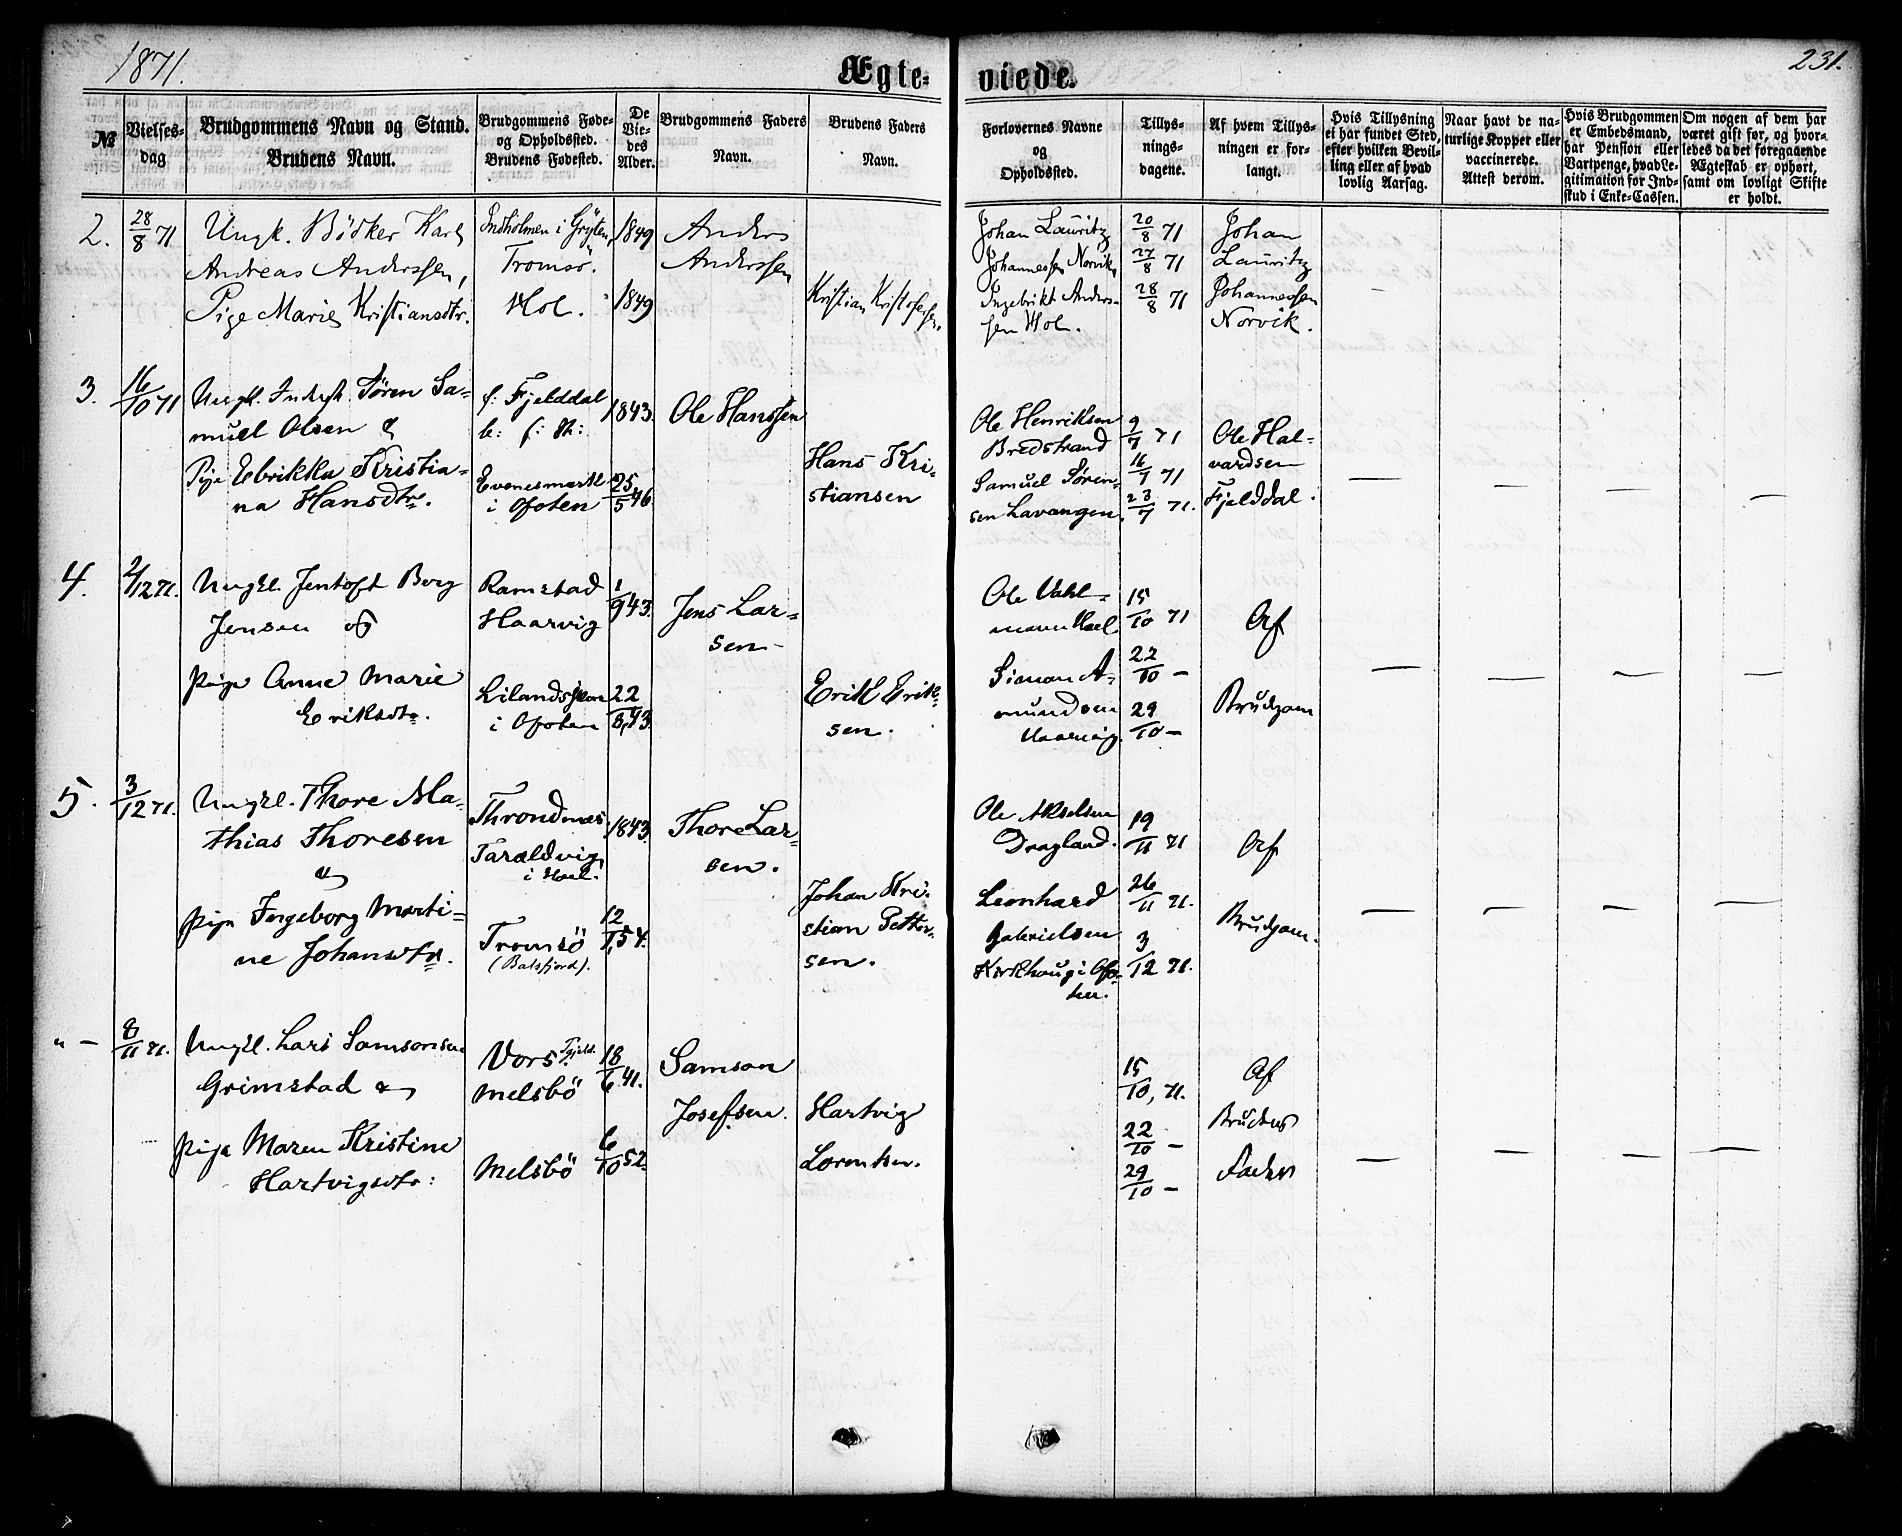 1871.
Ægte-
viede.
231.
№
Vielses-
dag
Brudgommens Navn og Stand.
Brudens Navn.
Brudgommens Føde-
og Opholdssted.
Brudens Fødested.
De
Vie-
des
Alder.
Brudgommens Faders
Navn.
Brudens Faders
Navn.
Forlovernes Navne
og
Opholdssted.
Tillys-
nings-
dagene.
Af hvem Tillys-
ningen er for-
langt.
Hvis Tillysning
ei har fundet Sted,
efter hvilken Bevil-
ling eller af hvad
lovlig Aarsag.
Naar havt de na-
turlige Kopper eller
vaccinerede.
Attest derom.
Hvis Brudgommen
er Embedsmand,
har Pension eller
Vartpenge, hvad Le-
gitimation for Ind-
skud i Enke-Cassen.
Om nogen af dem har
været gift før, og hvor-
ledes da det foregaaende
Ægteskab er ophørt,
samt om lovligt Skifte
er holdt.
2.
28/8 71
Ungk. Bödker Karl
Andreas Anderssen,
Pige Marie Kristiansdtr.
Indholmen i Gryten,
Tromsö.
Hol.
1849
1849
Anders
Anderssen
Kristian Kristofersen.
Johan Lauritz
Johannessen Norvik,
Ingebrikt Anders-
sen Hol.
20/8 71
27/8 71
28/8 71
Johan
Lauritz
Johannessen
Norvik.
3.
16/10 71
Ungk. Søren Sa-
muel Olsen &
Pige Ebrikka Kristia-
na Hansdtr.
f: Fjelddal
b: f: St:
Evenesmark
i Ofoten
1843.
25/5 46
Ole Hanssen
Hans Kri-
stiansen
Ole Henriksen
Bredstrand
Samuel Søren-
sen Lavangen.
9/7 71
16/7 71
23/7 71.
Ole Hal-
vardsen
Fjelddal.
4.
2/12 71.
Ungkl. Jentoft Berg
Jensen og
pige Anne Marie
Eriksdtr.
Ramstad
Haarvig
i Ofoten
1/9 43.
22/8, 43.
Jens Lar-
sen -
Erik Erik-
sen.
Ole Vahl-
Simon A-
mundsen
Haarvig.
15/10 71
22/10 -
29/10 -
Af
Brudgom
5.
3/12 71.
Ungkl. Thore Ma-
thias Thoresen
&
pige Ingeborg Marti-
ne Johansdtr.
Throndenæs
Taraldvig
i Hol.
Tromsö
(Balsfjord).
1843.
12/1, 54.
Thore Lar-
sen.
Johan Kri-
stian Petter-
sen.
Ole Akselsen
Dragland.
Leonhard
Gabrielsen
Kirkhaug i Ofo-
ten.
19/11 71
26/11 71.
3/12 71.
Af
Brudgom.
" -
8/11 71.
Ungkl. Lars Samsonsen
Grimstad &
pige Maren Kristine
Hartvigsdtr:
Melsbö
Melsbö
18/6 41.
6/10 52.
Samson
Josefsen.
Hartvig
Lorentsen.
15/10, 71.
22/10 -
29/10 -
Af
Brudens
Fader